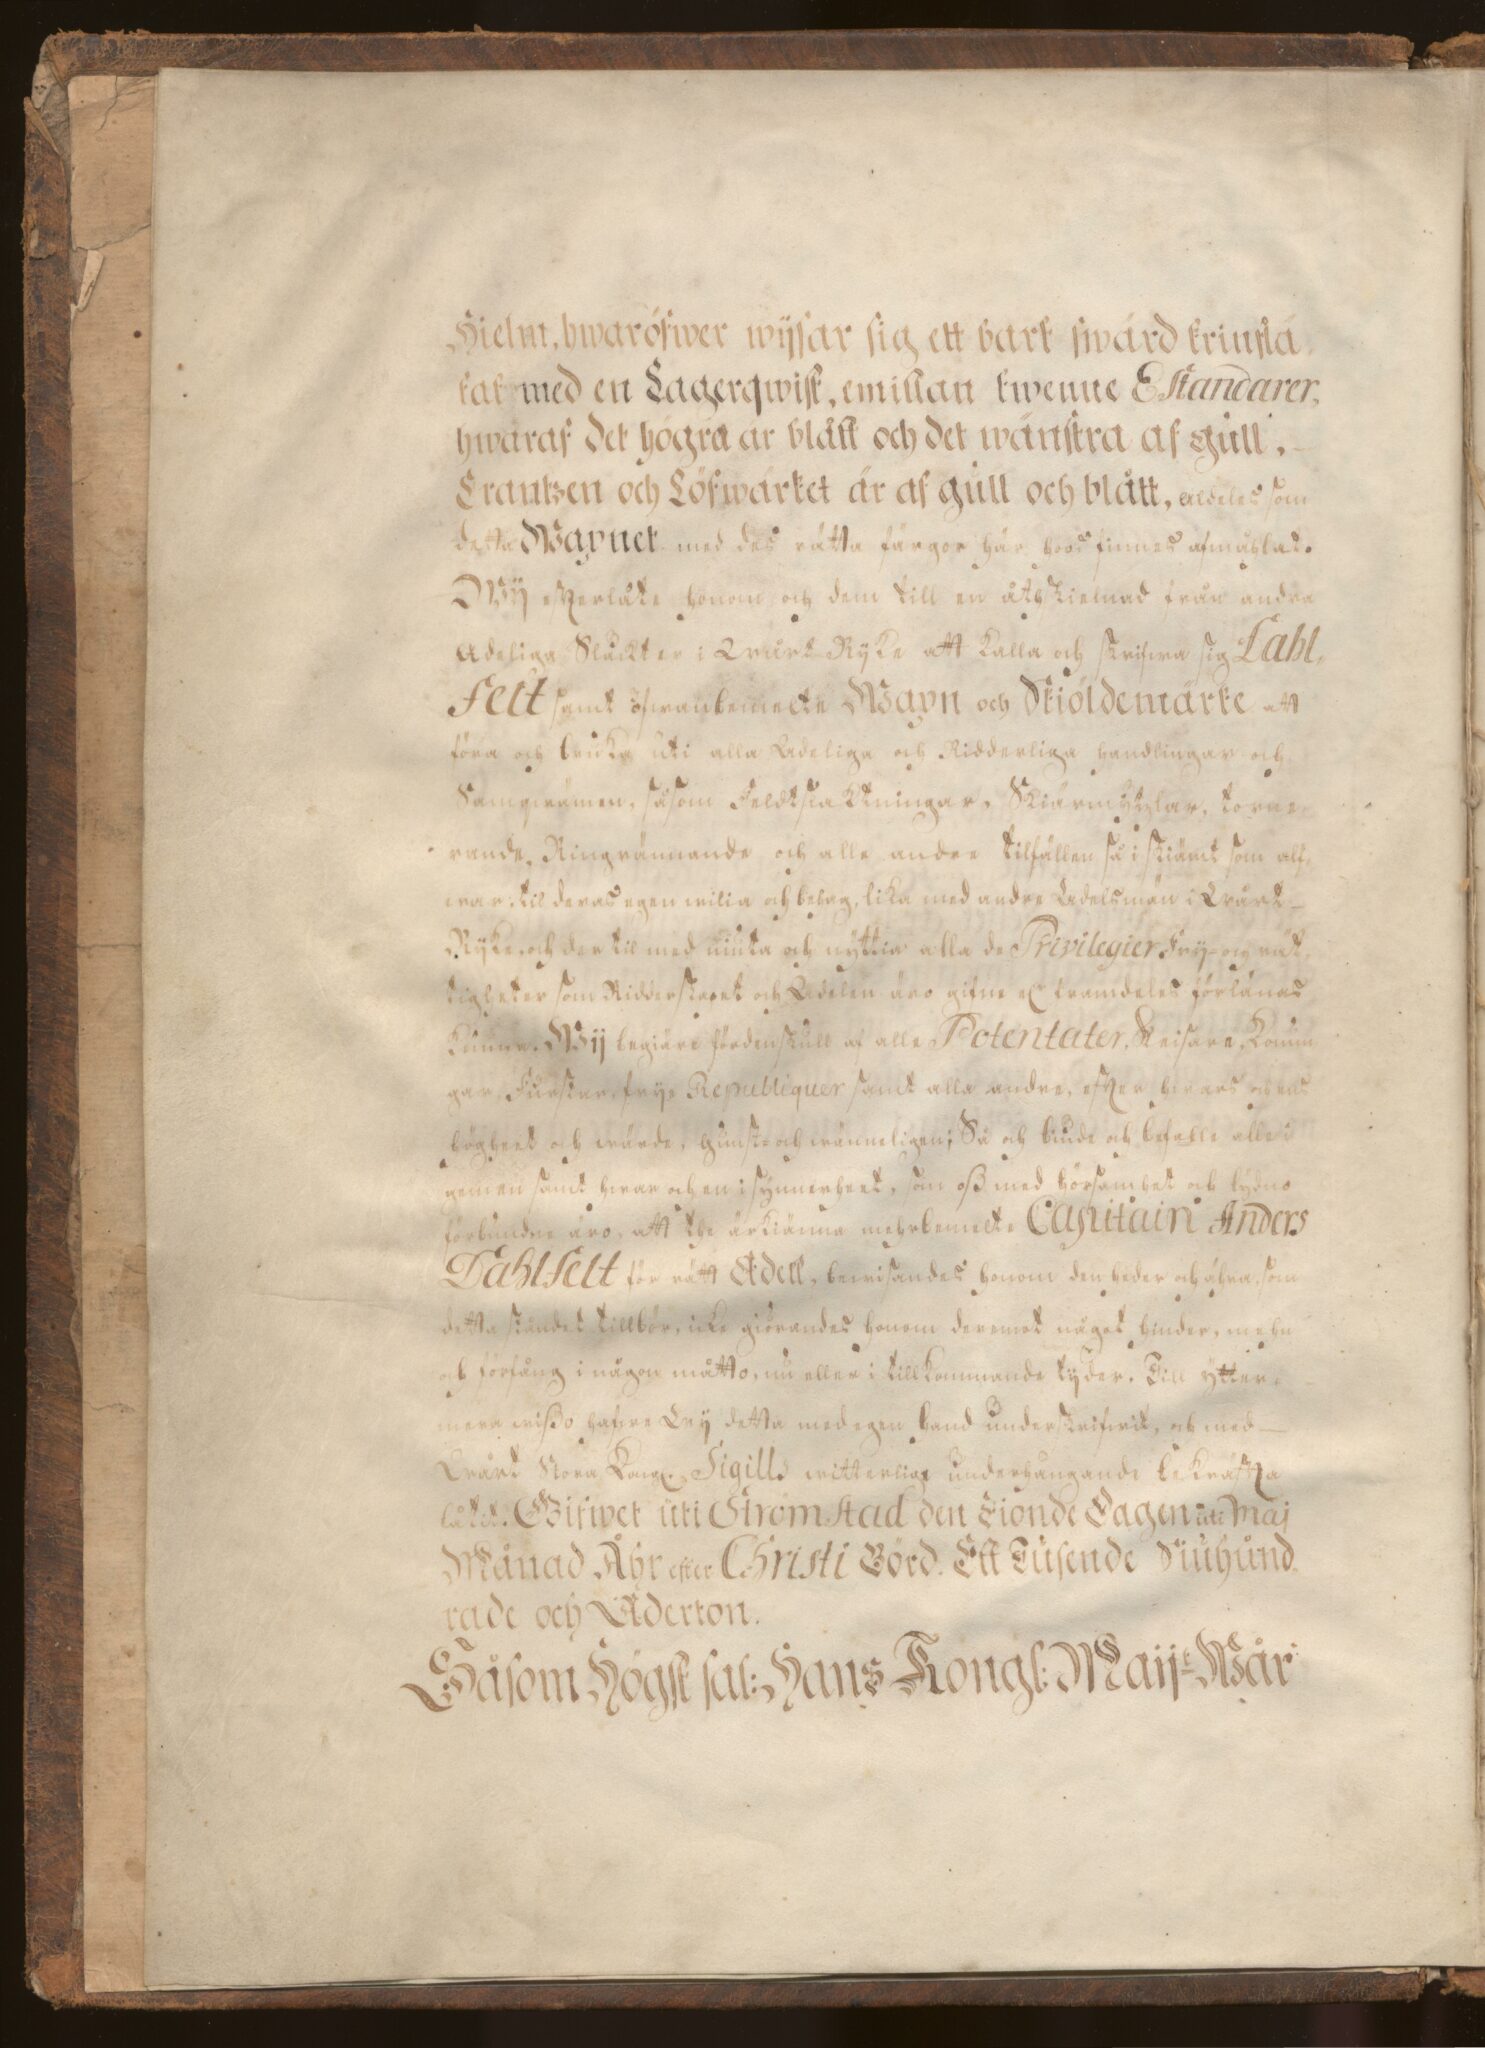 Hielm, hwaröfwer wÿsar sig ett bart swärd kringstä,
kat med en Lagerqwist, emillan twenne Estandarer,
hwaraf det högra är blått och det wänstra af gull,
Crantzen och Löfwärket är af gull och blått, aldeles som
detta Wapnet med des rätta färgor här hoos finnes afmåhlat.
Wÿ efterlåte honom och dem till en åthskielnad från andra
Adeliga Släckter i Wårt Ryke att kalla och skrifwa sig Dahl,
felt samt ofwanbemelte Wapn och Skiöldemärke att
föra och bruka uti alla Adeliga och Ridderliga handlingar och
Samqwämen, såsom Feldtslacktningar, Skiärmÿtzlar, torne,
rande, Ringrännande och alle andre tilfällen så i skiämt som alf,
war, til deras egen wilia och behag, lika med andre Adelsmän i Wårt
Ryke, och der til med niuta och nyttia alla de Privilegier, Fry- och rät,
tigheter som Ridderskapet och Adelen äro gifne och framdeles förlänas
kunna. Wij begiäre fördenskull af alle Potentater, Keisare, Konun
gar, Furstar, frye Republiquer samt alla andre, efter hwars och ens
högheet och wärde, gunst- och wänneligen; Så och biude och befalle alle i
gemen samt hwar och en i synnerheet, som oß med hörsamhet och lydno
förbundne äro, att the ärkiänna mehrbemelte Capitain Anders
Dahlfelt för rätt Adell, bewisandes honom den heder och ähra, som
detta ståndet tillbör, icke giörandes honom deremot något hinder, mehn
och förfång i någon måtto, nu eller i tillkommande tyder. Till ytter,
mera wißo hafwe Wij detta med egen hand underskrifwit, och med
Wårt Stora Kongl. Sigill witterlige underhängande bekräfta
låtit. Gifwet uti Strömstad den Tionde Dagen uti Maj
Månad Åhr efter Christi Börd. Ett Tusende Siuhund,
rade och Aderton.
Såsom Högst sal: Hans Kongl: Maij:t Wår